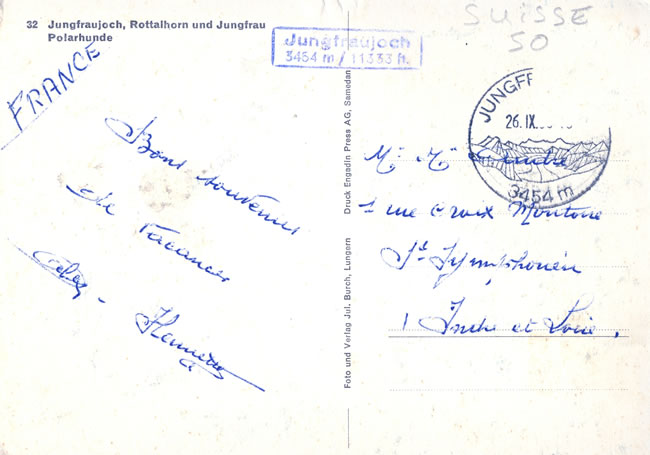 32 Jungfraujoch, Rottalhorn und Jungfrau
Polarhunde
Jungfraujoch
3454 m / 11333 ft.
SUISSE
50
FRANCE
JUNGFR
26. IX.
3454 m
Bons souvenirs
de vacances
Foto und Verlag Jul. Burch, Lungern Druck Engadin Press AG, Samedan
Mr Me
1 rue Croix Montoire
St. Symphorien
Indre et Loire.